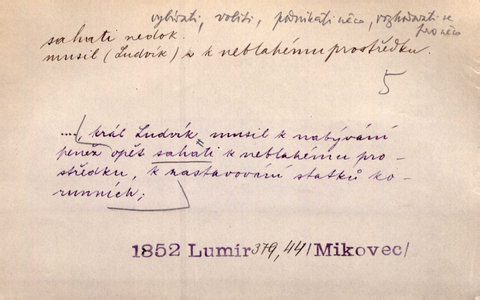 vybírati, voliti, podnikati něco, rozhodovati se
pro něco
sahati nedok.
musil (Ludvík) s k neblahému prostředku.
5
...., král Ludvík musil k nabývání
peněz opět sahati k neblahému pro-
středku, k nastavování statků ko-
runních;
1852 Lumír 379,44 /Mikovec/